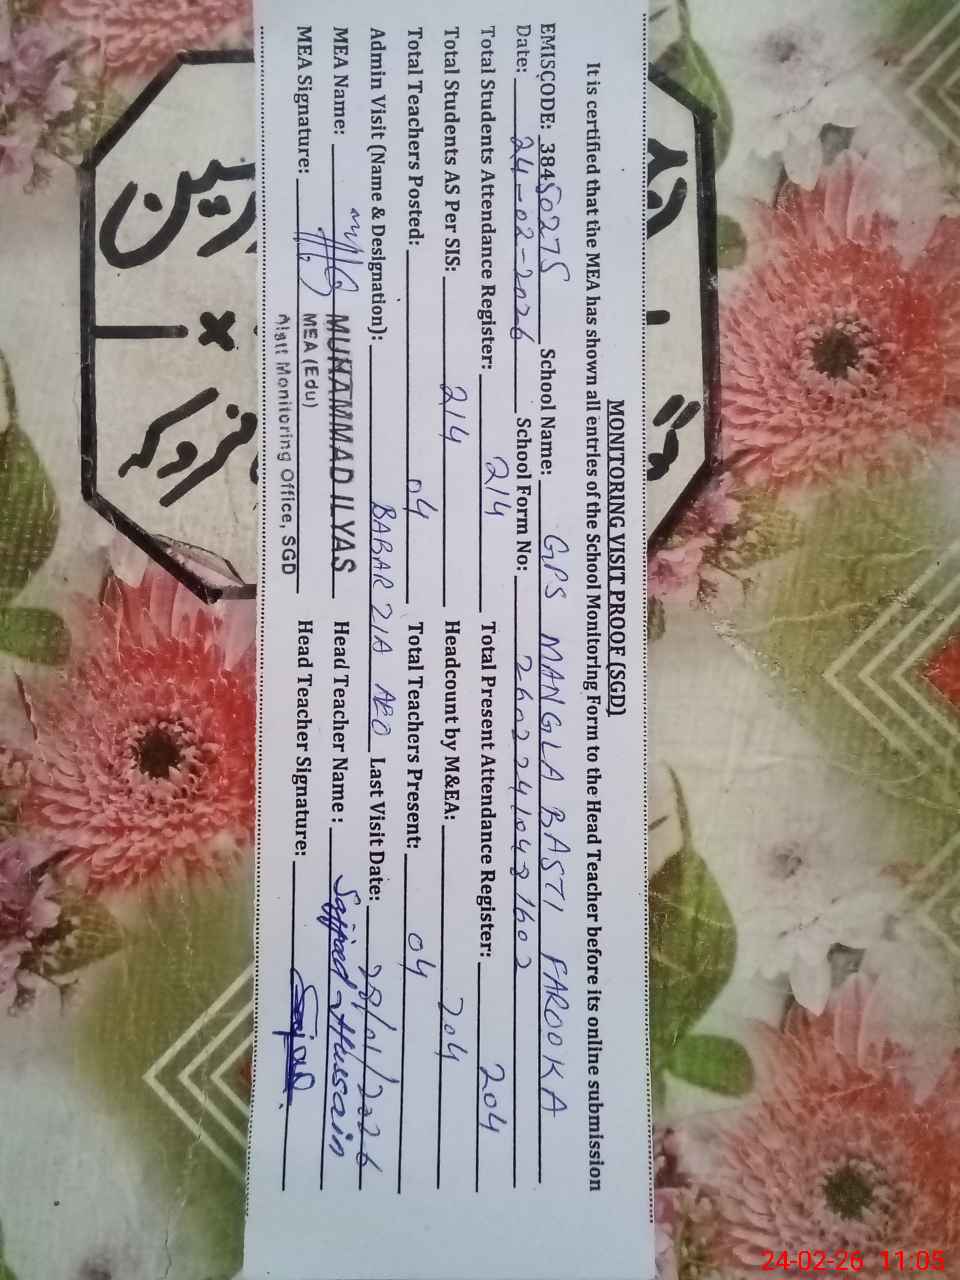 MONITORING VISIT PROOF (SGD)
It is certified that the MEA has shown all entries of the School Monitoring Form to the Head Teacher before its online submission
EMISCODE: 38450275 School Name: GPS MANGLA BASTI FAROOKA
Date: 24-02-2026 School Form No:
Total Students Attendance Register: 214 Total Present Attendance Register: 204
Total Students AS Per SIS: 214 Headcount by M&EA: 204
Total Teachers Posted: 04 Total Teachers Present: 04
Admin Visit (Name & Designation): BABAR ZIA AEO Last Visit Date:
MEA Name: MUHAMMAD ILYAS Head Teacher Name : Sajjad Hussain
MEA Signature: MEA (Edu) Head Teacher Signature:
Monitoring Office, SGD
24-02-26 11:05